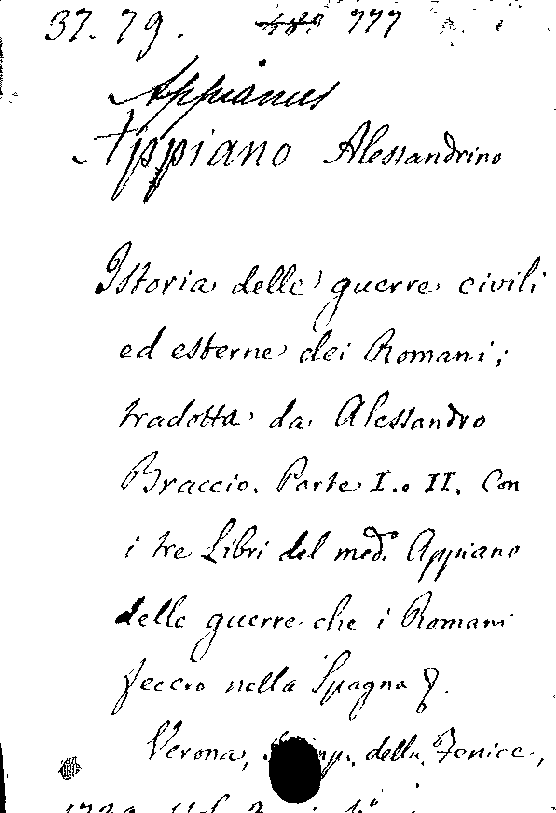 37. 79. 777
Appianus
Appiano Alessandrino
Istoria delle guerre civili
ed esterne dei Romani;
tradotta da Alessandro
Braccio. Parte I. e II. Con
i tre Libri del med. Appiano
delle guerre che i Romani
fecero nella Spagna
Verona, della Fenice,